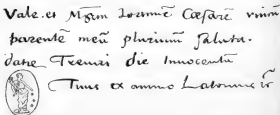 Vale. et Mgrm Joannē Cæsarē virum
parentē meū plurimum saluta.
datae Treveri die Innocentū
Tuus ex animo Latomus